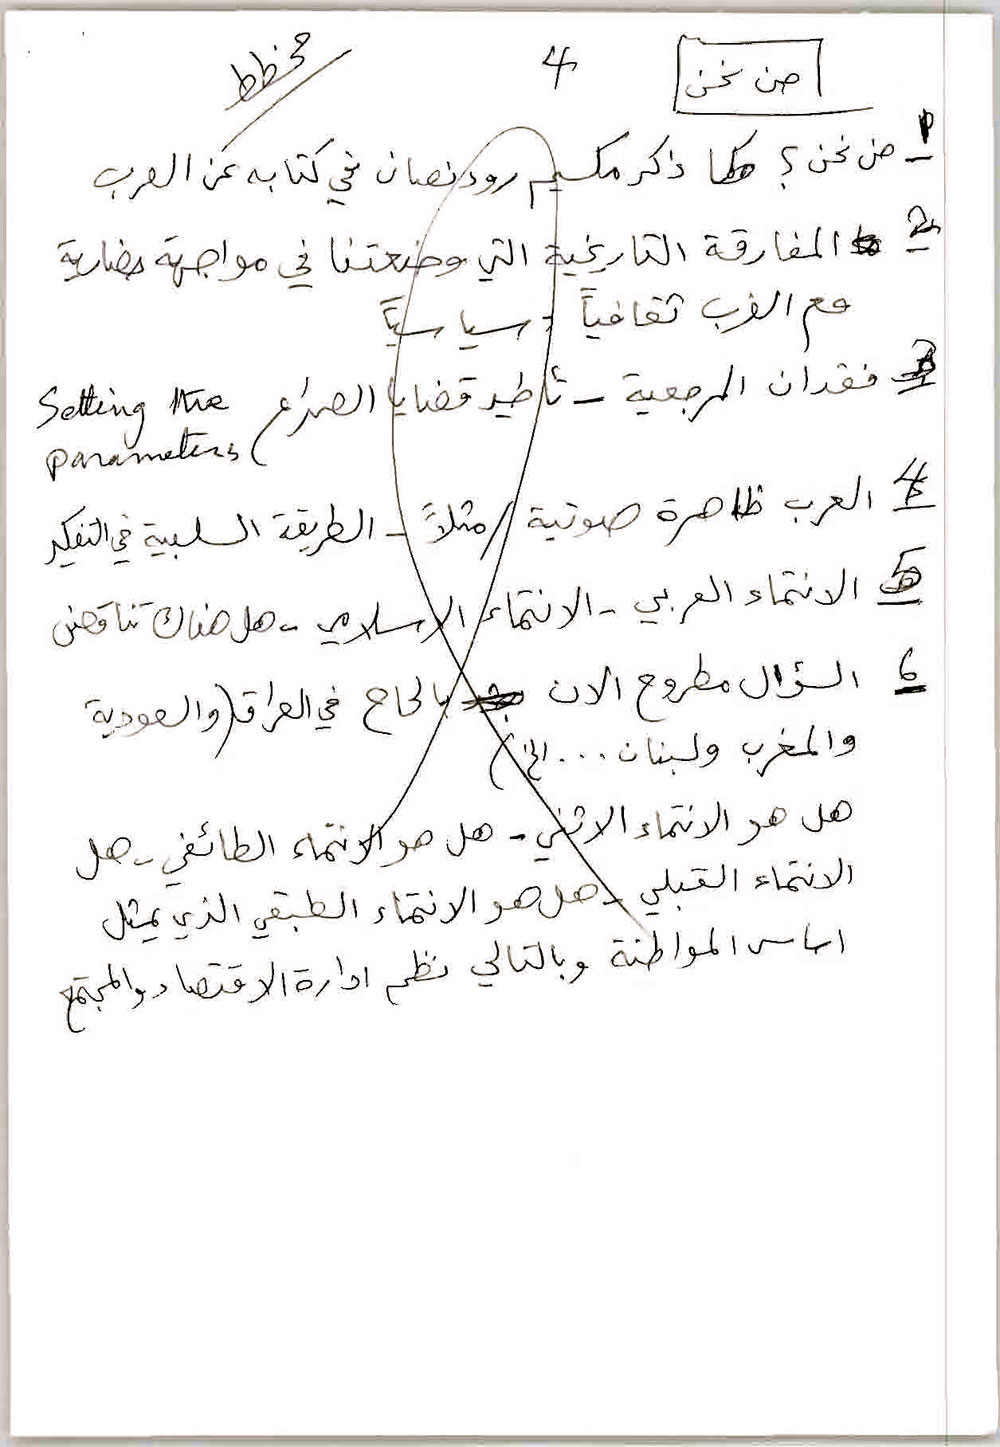 من نحن
4
مخطط
1- من نحن ؟ كما ذكر مكسيم رودنصان في كتابه عن العرب
2- المفارقة التاريخية التي وضعتنا في مواجهة حضارية
مع الغرب ثقافياً : سياسياً
3- فقدان المرجعية - تأطير قضايا الصراع (Setting the
parameters
4- العرب ظاهرة صوتية / مثلاً - الطريقة السلبية في التفكير
5- الانتماء العربي - الانتماء الاسلامي - هل هناك تناقض
6- السؤال مطروح الان بالحاح في العراق (والسعودية
والمغرب ولبنان ... الخ)
هل هو الانتماء الاثني - هل هو الانتماء الطائفي - هل
الانتماء القبلي - هل هو الانتماء الطبقي الذي يمثل
اساس المواطنة وبالتالي نظم ادارة الاقتصاد والمجتمع